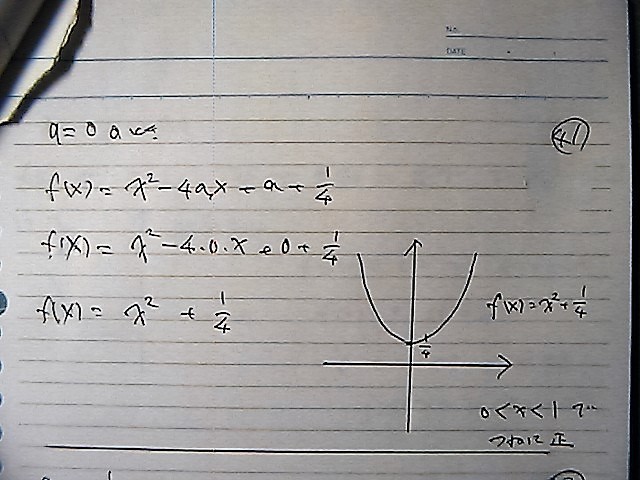 No.
DATE
a=0のとき
41
f(x) = x² - 4ax + a + 1/4
f(x) = x² - 4・0・x + 0 + 1/4
f(x) = x² + 1/4
f(x) = x² + 1/4
1/4
0<x<1で
つねに正